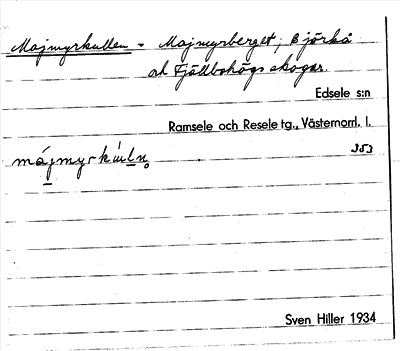 Majmyrkullen = Majmyrberget, Björkå
och Fjällbohögs skogar.
Edsele s:n
Ramsele och Resele tg., Västernorrl. l.
353
Sven Hiller 1934